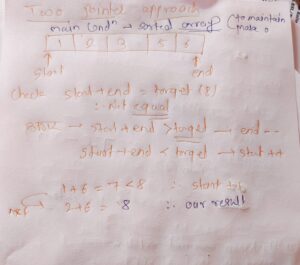 Two pointer approach
main condⁿ → sorted array (to maintain
1 2 3 5 6
start end
Check start + end = target (8)
∴ Not equal
→ start + end > target → end --
start + end < target → start ++
1 + 6 = 7 < 8 ∴ start
2 + 6 = 8 ∴ our result